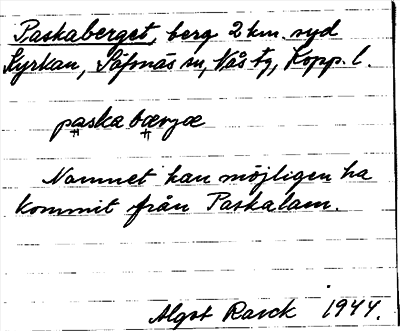 Paskaberget, berg 2 km. syd
Kyrkan, Säfsnäs sn, Nås tg, Kopp. l.
paska bærjæ
Namnet kan möjligen ha
kommit från Paskalam.
Algot Rasck 1944.